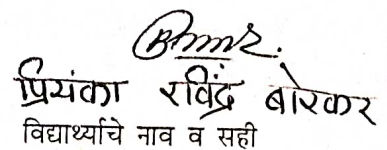 प्रियंका रविंद्र बोरकर
विद्यार्थ्याचे नाव व सही